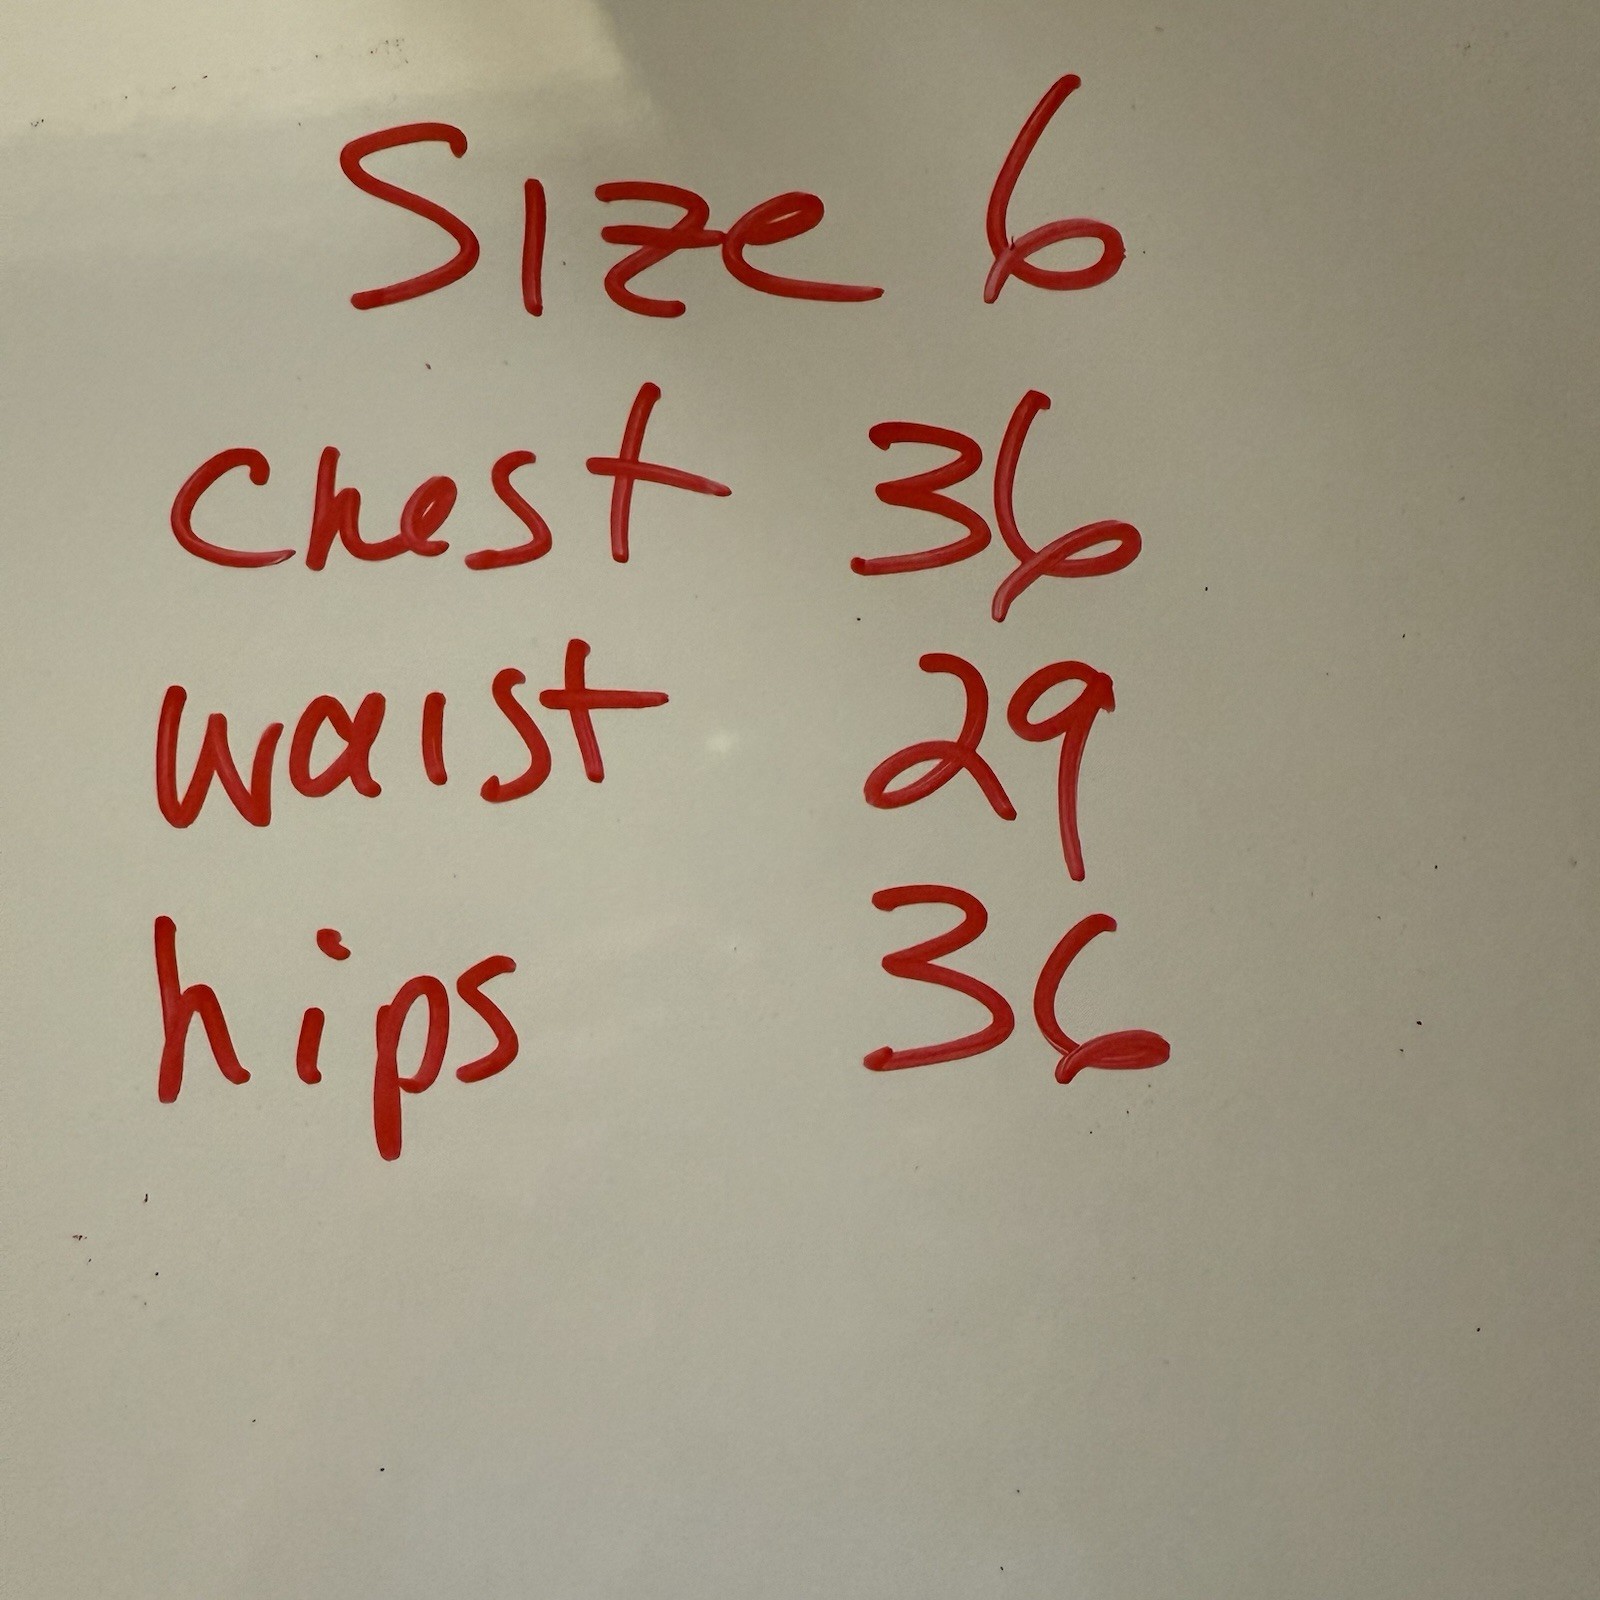 Size 6
chest 36
waist 29
hips 36